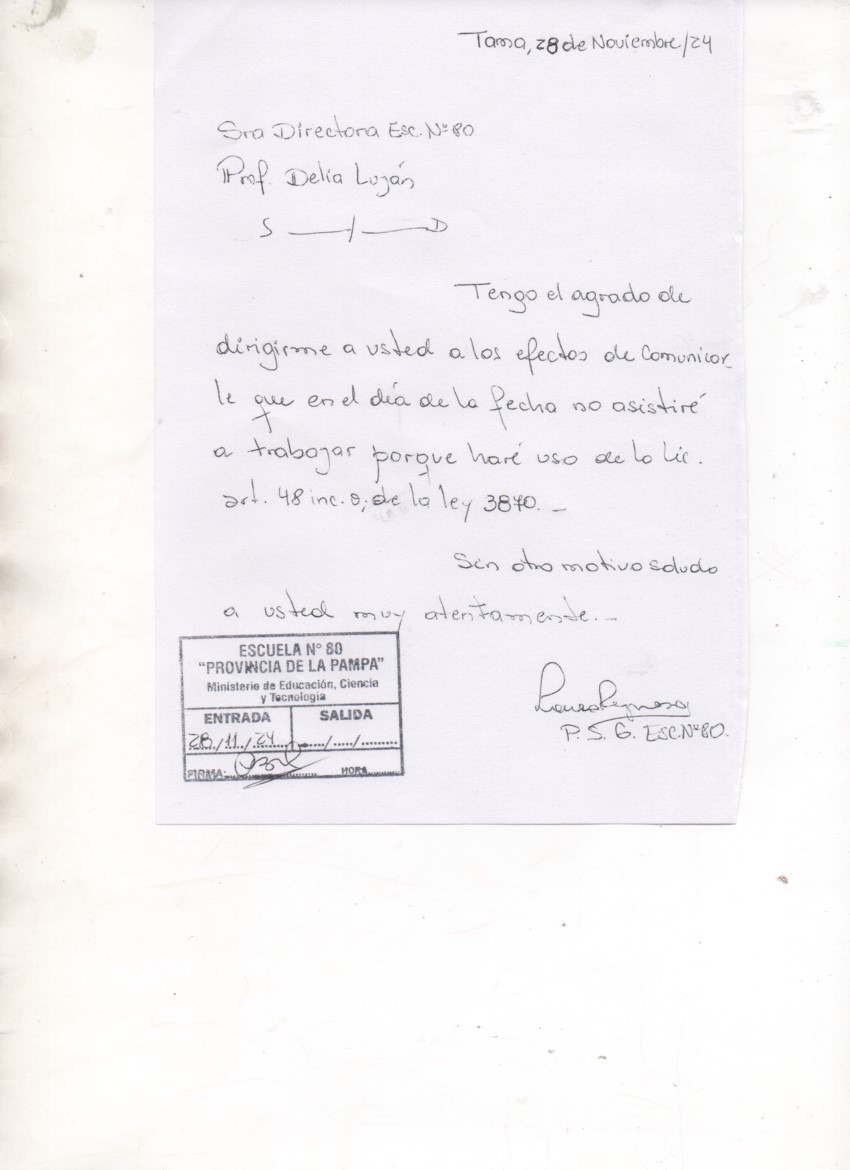 Tama, 28 de Noviembre/24
Sra Directora Esc. Nº 80
Prof. Delia Luján
S —/— D
Tengo el agrado de
dirigirme a usted a los efectos de comunicar
le que en el día de la fecha no asistiré
a trabajar porque haré uso de la Lic.
art. 48 inc. 8, de la ley 3870. _
Sin otro motivo saludo
a usted muy atentamente. _
ESCUELA Nº 80
"PROVINCIA DE LA PAMPA"
Ministerio de Educación, Ciencia
y Tecnología
ENTRADA SALIDA
28/11/24 ..../..../........
FIRMA: HORA
P. S. G. Esc. Nº 80.